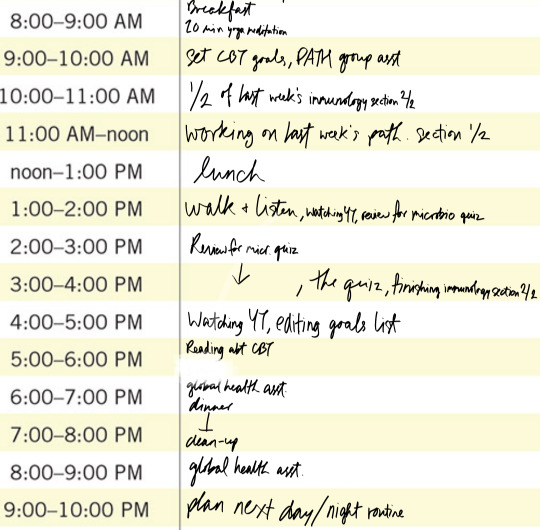 Breakfast
8:00–9:00 AM 20 min yoga meditation
9:00–10:00 AM Set CBT goals, PATH group asst
10:00–11:00 AM 1/2 of last week's immunology section 2/2
11:00 AM–noon working on last week's path. section 1/2
noon–1:00 PM lunch
1:00–2:00 PM walk + listen, watching YT, review for microbio quiz
2:00–3:00 PM Review for micr. quiz
3:00–4:00 PM ↓ , the quiz, finishing immunology section 2/2
4:00–5:00 PM Watching YT, editing goals list
5:00–6:00 PM Reading abt CBT
global health asst.
6:00–7:00 PM dinner
7:00–8:00 PM clean-up
8:00–9:00 PM global health asst.
9:00–10:00 PM plan next day/night routine